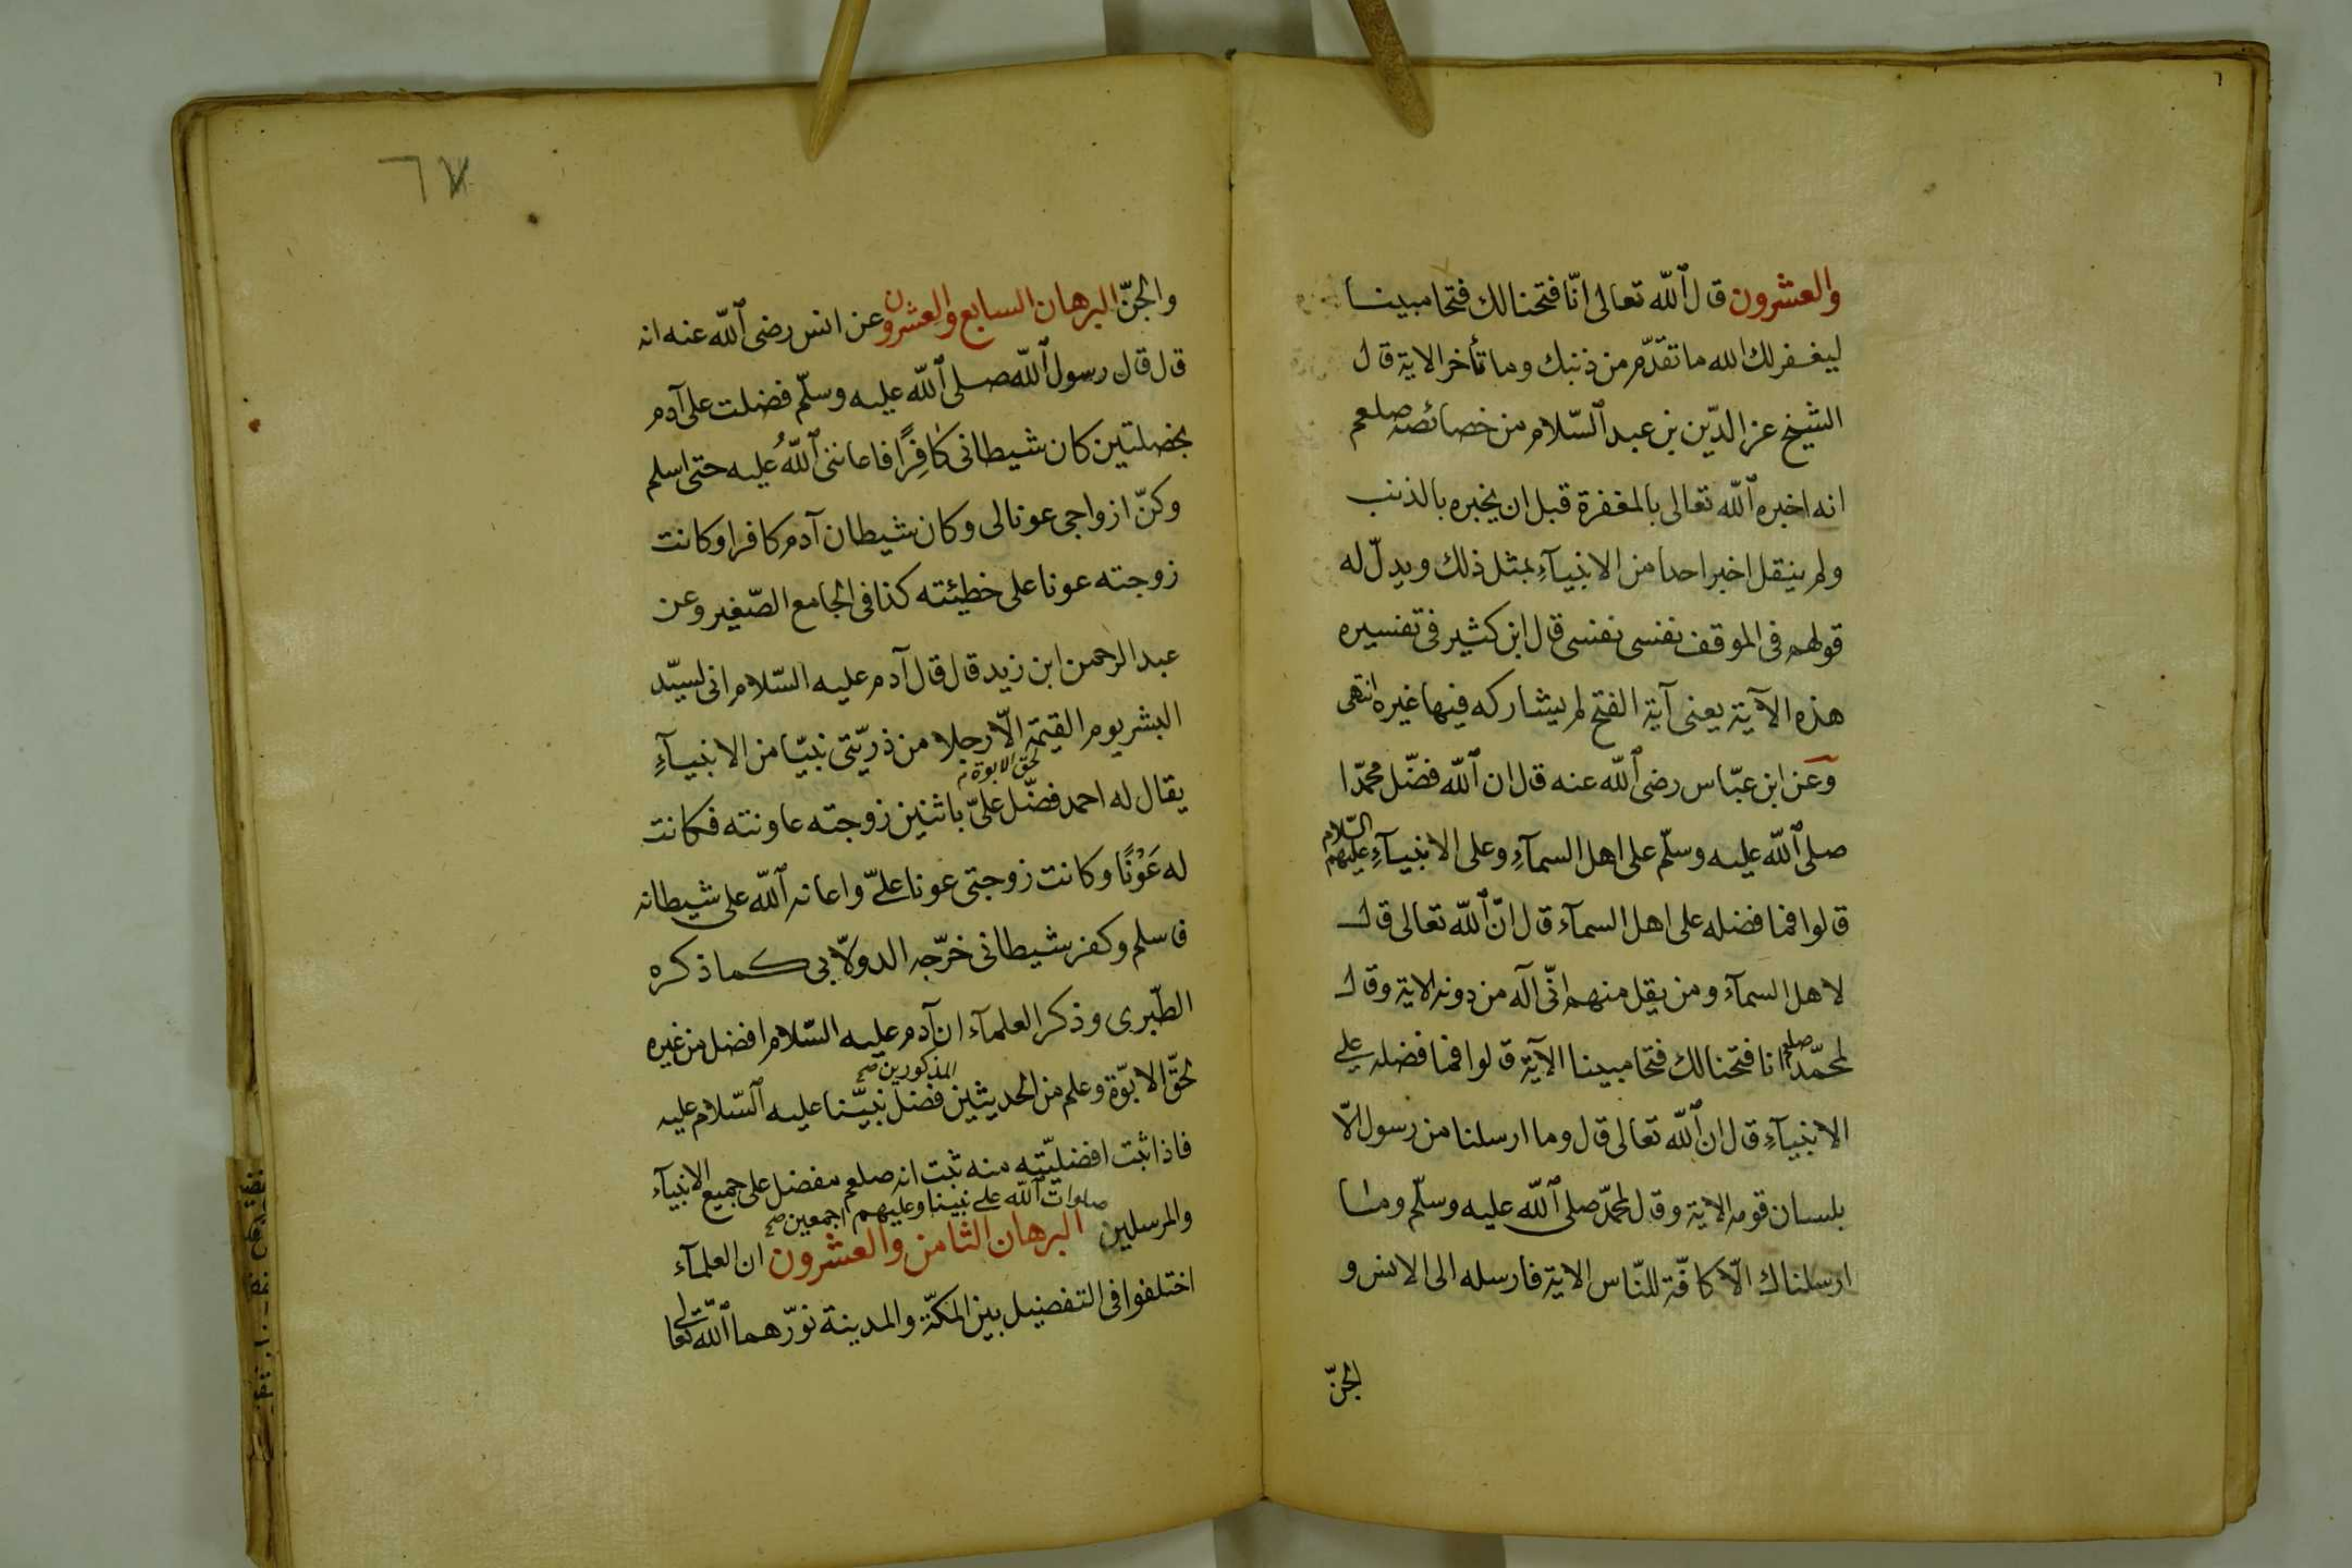 والعشرون قال الله تعالى انّا فتحنا لك فتحا مبينا
ليغفر لك الله ما تقدّم من ذنبك وما تأخر الاية قال
الشيخ عز الدّين بن عبد السّلام من خصائصه صلعم
انه اخبره الله تعالى بالمغفرة قبل ان يخبره بالذنب
ولم ينقل اخبر احدا من الانبيآءِ بمثل ذلك ويدلّ له
قولهم فى الموقف نفسى نفسى قال ابن كثير فى تفسيره
هذه الآية يعنى آية الفتح لم يشاركه فيها غيره انتهى
وعن ابن عبّاس رضى الله عنه قال ان الله فضّل محمّدا
صلى الله عليه وسلّم على اهل السمآءِ وعلى الانبيآءِ عليهم السّلام
قالوا فما فضله على اهل السمآء قال انّ الله تعالى قال
لاهل السمآء ومن يقل منهم انّى اله من دونه الاية وقال
لمحمّد صلعم انا فتحنا لك فتحا مبينا الآية قالوا فما فضله على
الانبيآءِ قال ان الله تعالى قال وما ارسلنا من رسول الّا
بلسان قومه الاية وقال لمحمّد صلى الله عليه وسلّم وما
ارسلناك الّا كافّة للنّاس الاية فارسله الى الانس و
الجنّ
٦٧
والجنّ البرهان السابع والعشرون عن انس رضى الله عنه انه
قال قال رسول الله صلى الله عليه وسلّم فضلت على آدم
بخصلتين كان شيطانى كافِرًا فاعاننى اللهُ عليه حتى اسلم
وكنّ ازواجى عونا لى وكان شيطان آدم كافرا وكانت
زوجته عونا على خطيئته كذا فى الجامع الصّغير وعن
عبد الرحمن ابن زيد قال قال آدم عليه السّلام انى لسيّد
البشر يوم القيمة الّا رجلا من ذريّتى نبيّا من الانبيآءِ
لحقّ الابوة
يقال له احمد فضّل علىّ باثنين زوجته عاونته فكانت
له عَوْنًا وكانت زوجتى عونا علىّ واعانه الله على شيطانه
فاسلم وكفر شيطانى خرّجه الدولّابى كما ذكره
الطّبرى وذكر العلمآء ان آدم عليه السّلام افضل من غيره
المذكورين صح
لحقّ الابوّة وعلم من الحديثين فضل نبيّنا عليه السّلام عليه
فاذا ثبت افضليّته منه ثبت انه صلعم مفضل على جميع الانبيآء
صلوات الله على نبينا وعليهم اجمعين صح
والمرسلين البرهان الثامن والعشرون ان العلمآء
اختلفوا فى التفضيل بين المكّة والمدينة نوّرهما الله تعالى